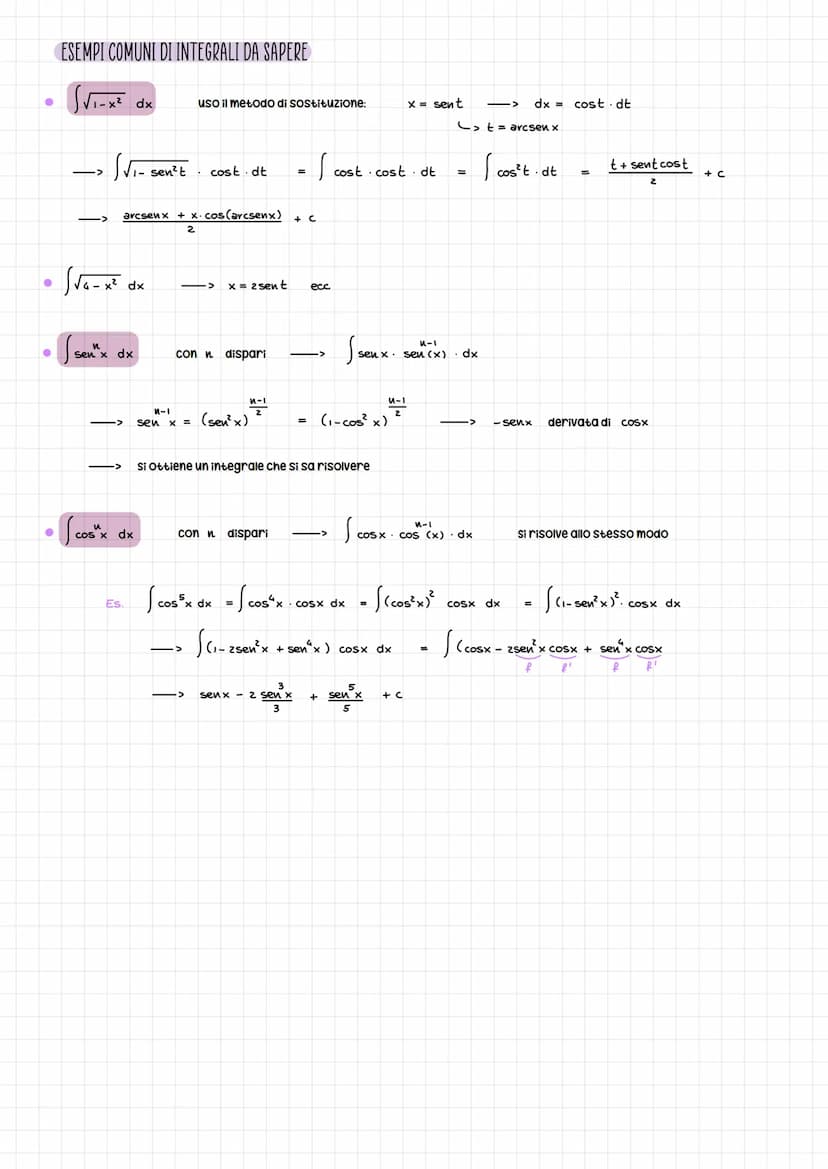 ESEMPI COMUNI DI INTEGRALI DA SAPERE
• ∫√(1-x²) dx   uso il metodo di sostituzione:   x = sent ⟶ dx = cost · dt
↳ t = arcsenx
⟶ ∫√(1- sen²t) · cost · dt = ∫ cost · cost · dt = ∫ cos²t · dt = (t + sent cost)/2 + c
⟶ (arcsenx + x·cos(arcsenx))/2 + c
• ∫√(4-x²) dx ⟶ x = 2sent   ecc
• ∫senⁿx dx   con n dispari ⟶ ∫senx · senⁿ⁻¹(x) · dx
⟶ senⁿ⁻¹x = (sen²x)^((n-1)/2) = (1-cos²x)^((n-1)/2) ⟶ -senx derivata di cosx
⟶ si ottiene un integrale che si sa risolvere
• ∫cosⁿx dx   con n dispari ⟶ ∫cosx · cosⁿ⁻¹(x) · dx   si risolve allo stesso modo
Es. ∫cos⁵x dx = ∫cos⁴x · cosx dx = ∫(cos²x)² cosx dx = ∫(1-sen²x)² · cosx dx
⟶ ∫(1-2sen²x + sen⁴x) cosx dx = ∫(cosx - 2sen²x cosx + sen⁴x cosx
f f' f f'
⟶ senx - 2 sen³x/3 + sen⁵x/5 + c